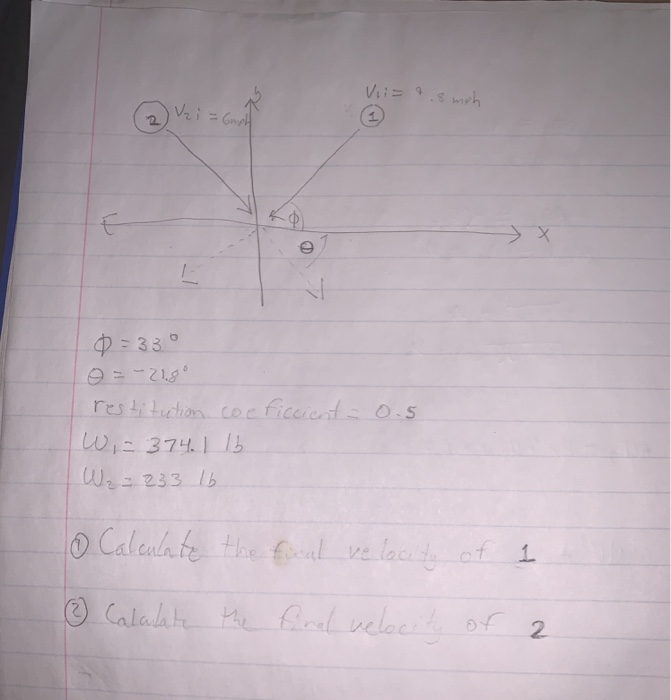 y
V1i = .8 mph
2 V2i = 6mph
1
ϕ
θ
x
ϕ = 33°
θ = -21.8°
restitution coeficcient = 0.5
W1 = 374.1 lb
W2 = 233 lb
① Calculate the final velocity of 1
② Calculate the final velocity of 2